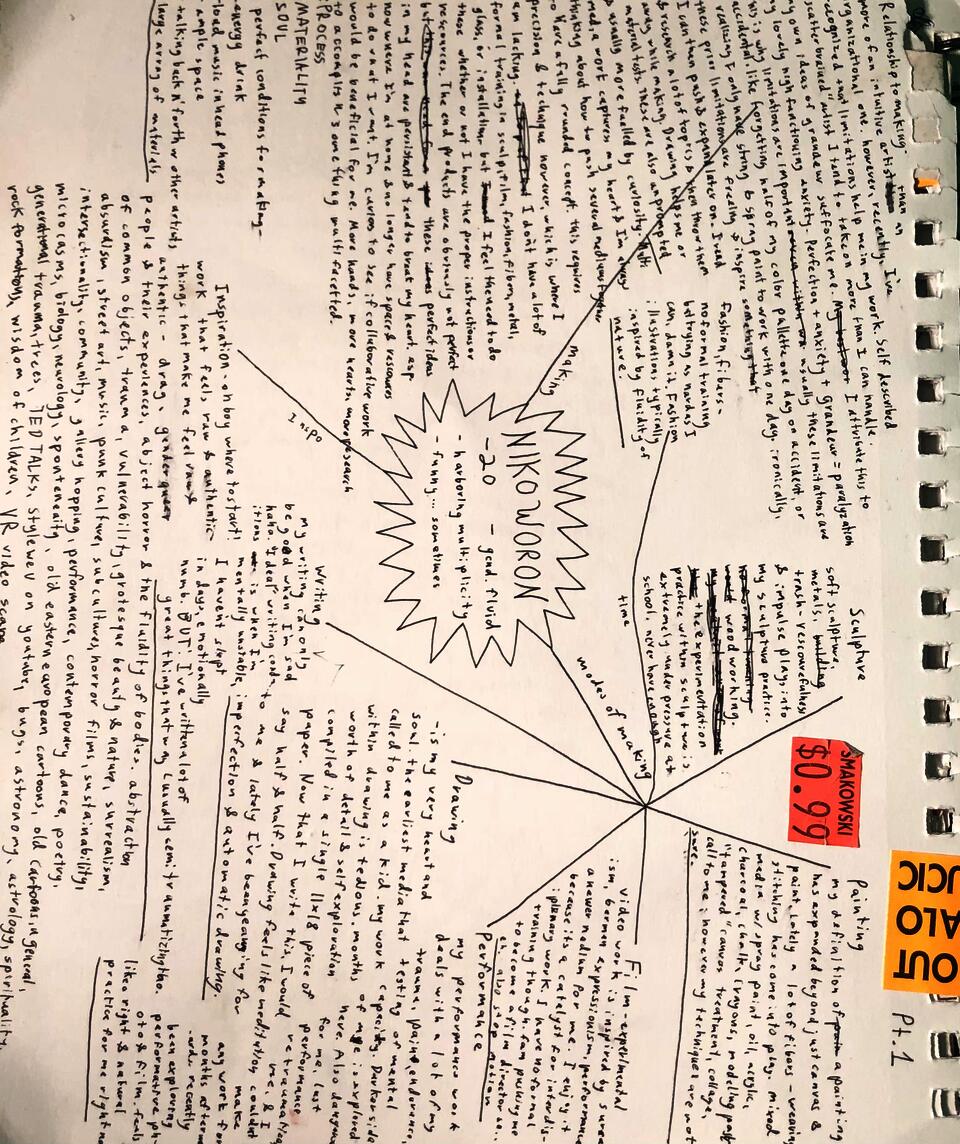 Relationship to making-
more of an intuitive artist than an
organizational one. however, recently, I've
recognized that limitations help me in my work. Self described
"scatterbrained" artist I tend to take on more than I can handle.
my own ideas of grandeur suffocate me. I attribute this to
my lovely high functioning anxiety. Perfection + anxiety + Grandeur = paralyzation
this is why limitations are important usually these limitations are
accidental, like forgetting half of my color pallette one day on accident, or
realizing I only have string & spray paint to work with one day, ironically,
these prior limitations are freeing & inspire something that
I can then push & expand later on. I read
& research a lot of topics & then throw them
away while making. Drawing helps me or
material tests. these are also prompted
& usually more fuelled by curiosity.
med, a work captures my heart & I'm
thinking about how to push several mediums together
to have a fully rounded concept. this requires
precision & technique however, which is where I
am lacking. I don't have a lot of
formal training in sculpt, film, fashion, fibers, metal,
glass, or installation but I feel the need to do
these whether or not I have the proper instructions or
resources. The end products are obviously not perfect
but these perfect ideas
in my head are persistent & tend to break my heart. esp
now where I'm at home & no longer have space & resources
to do what I want. I'm curious to see if collaborative work
would be beneficial for me. More hands, more hearts, more research
to accomplish something multifaceted.
PROCESS
MATERIALITY
SOUL
perfect conditions for making-
-energy drink
-loud music in headphones
-ample space
-talking back n' forth w other artists
-large array of materials
making
fashion, fibers-
no formal training
but trying as hard as I
can, damn it. Fashion
illustrations typically
inspired by fluidity of
nature.
NIKO WORON
-20 - gend. fluid
-harboring multiplicity
-funny... sometimes
inspo
Inspiration- oh boy where to start!
work that feels raw & authentic
things that make me feel raw &
authentic - drag, genderqueer
people & their experiences, abject horror & the fluidity of bodies, abstraction
of common objects, trauma, vulnerability, grotesque beauty & nature, surrealism,
absurdism, street art, music, punk culture, subcultures, horror films, sustainability,
intersectionality, community, gallery hopping, performance, contemporary dance, poetry,
microcosms, biology, neurology, spontaneity, old eastern european cartoons, old cartoons in general,
generational trauma, trees, TED TALKS, stylewev on youtube, bugs, astronomy, astrology, spirituality,
rock formations, wisdom of children, VR video scape
modes of making
Sculpture
soft sculpture,
metals, building
trash- rescourcefulness
& impulse plays into
my sculpture practice.
wood working-
the experimentation
practice within sculpture is
extremely under pressure at
school, never have enough
time
SMAKOWSKI
$0.99
Painting
my definition of painting
has expanded beyond just canvas &
paint. lately a lot of fibers - weaving
stitching has come into play. mixed
media w/ spray paint, oil, acrylic,
charcoal, chalk, crayons, modeling paste
"tampered" canvas treatment, collage,
call to me; however my techniques are not
sure.
Film-experimental
video work is inspired by surreal
ism, german expressionism, performance
a newer medium for me. I enjoy it
because its a catalyst for interdis-
iplinary work. I have no formal
training though. fam pushing me
to become a film director
also stop motion
Performance
my performance work
deals with a lot of my
trauma, pain, endurance,
testing of mental
capacity. Darker side
of me is explored
here. Also dangerous
for me, last
performance
retraumatized
me, & I
couldn't make
any work for
months after
recently
been exploring
performative ph
oto & film. feels
like a right & natural
practice for me right now
Drawing
- is my very heart and
soul. the earliest media that
called to me as a kid. my work
within drawing is tedious, months
worth of detail & self exploration
compiled in a single 11x18 piece of
paper. Now that I write this, I would
say half & half. Drawing feels like meditation
to me & lately I've been yearning for
imperfection & automatic drawing.
Writing
my writing can only
be good when I'm sad
haha. "Ideal" writing cond-
itions is when I'm
mentally unstable,
I haven't slept
in days, emotionally
numb. BUT I've written a lot of
great things that way (usually semi traumatizing tho.
OUT
ALO
Pt. 1